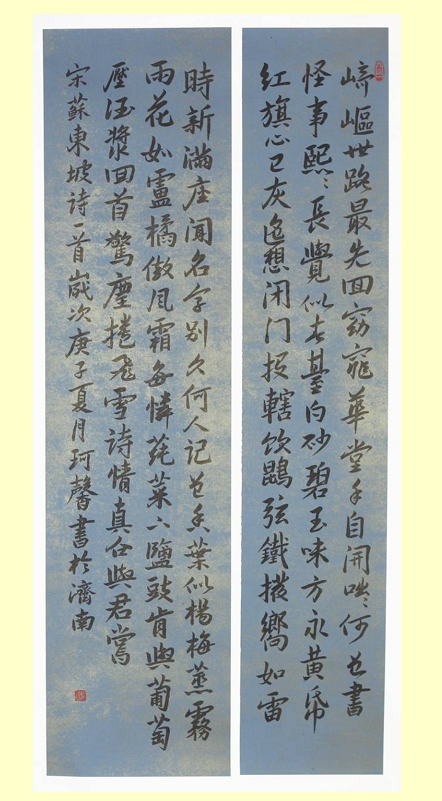 崎嶇世路最先回窈窕華堂手自開咄々何曾書
怪事熙々長覺似春臺白砂碧玉味方永黄紙
红旗心已灰遥想闭门投轄饮鹍弦鐵撥響如雷
時新滿座聞名字别久何人記色香葉似楊梅蒸霧
雨花如盧橘傲風霜每憐莼菜下鹽豉肯與葡萄
壓酒漿回首驚塵捲飛雪詩情真合與君嘗
宋蘇東坡詩一首歲次庚子夏月珂馨書於濟南